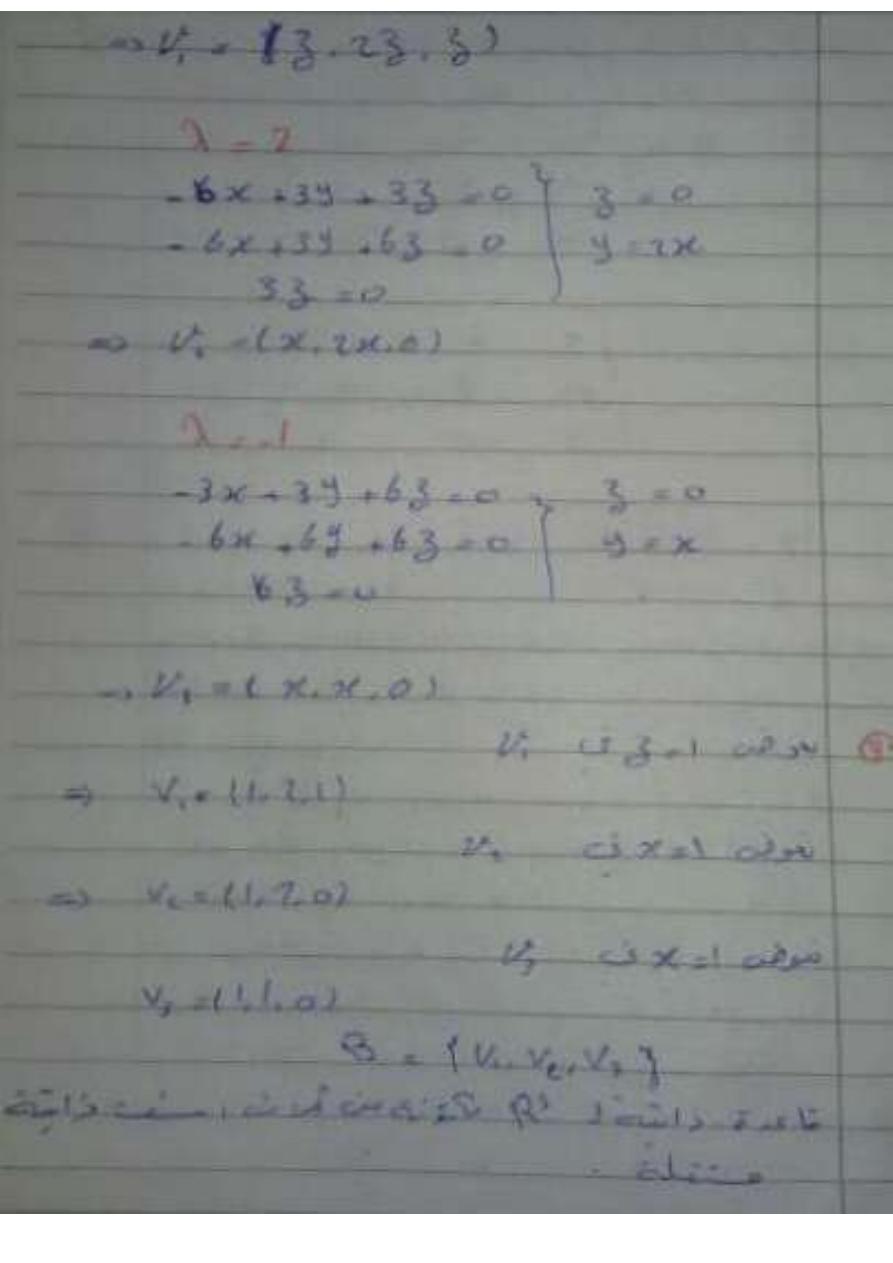 ⇒ V₁ = (z, 2z, z)
λ = 2
-6x + 3y + 3z = 0 } z = 0
-6x + 3y + 6z = 0 } y = 2x
3z = 0
⇒ V₂ = (x, 2x, 0)
λ = -1
-3x + 3y + 6z = 0 } z = 0
-6x + 6y + 6z = 0 } y = x
6z = 0
→ V₃ = (x, x, 0)
نعوض z = 1 في V₁
⇒ V₁ = (1, 2, 1)
نعوض x = 1 في V₂
⇒ V₂ = (1, 2, 0)
نعوض x = 1 في V₃
V₃ = (1, 1, 0)
B = {V₁, V₂, V₃}
قاعدة ذاتية لـ R³ من ثلاث أشعة ذاتية
مستقلة .